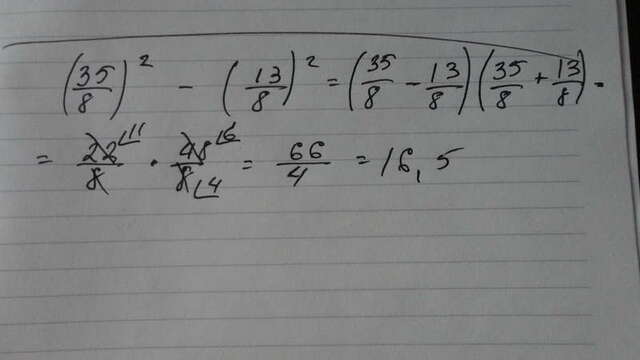 (35/8)² - (13/8)² = (35/8 - 13/8)(35/8 + 13/8) =
= 22/8 · 48/8 = 66/4 = 16,5